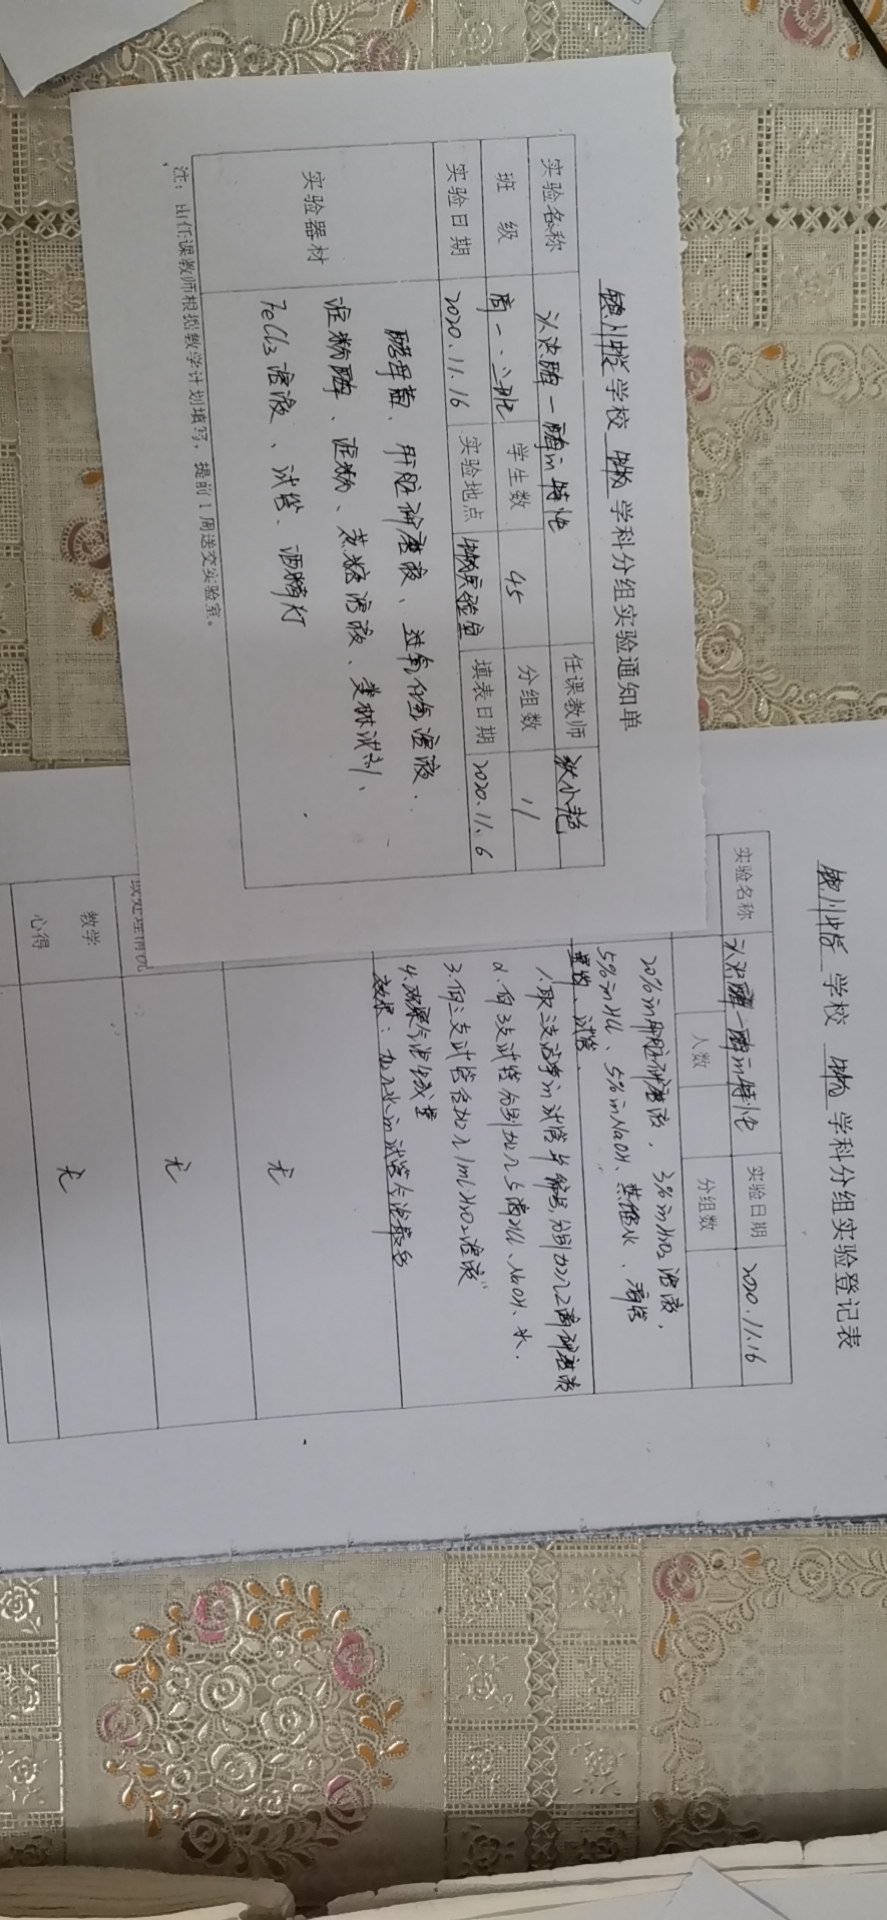 学校 生物 学科分组实验通知单
实验名称 认识酶—酶的特性 任课教师
班 级 高一.二班 学生数 45 分组数 11
实验日期 2020.11.16 实验地点 生物实验室 填表日期 2020.11.6
实验器材
酵母菌、肝脏研磨液、过氧化氢溶液、
淀粉酶、淀粉、蔗糖溶液、斐林试剂、
FeCl3溶液、试管、酒精灯
注：由任课教师根据教学计划填写，提前1周送交实验室。
学校 生物 学科分组实验登记表
实验名称 认识酶—酶的特性 实验日期 2020.11.16
人数 分组数
20%的肝脏研磨液、3%的H2O2溶液、
5%的HCl、5%的NaOH、蒸馏水、滴管
量筒、试管
1.取三支洁净的试管并编号,分别加入2滴研磨液
2.向3支试管分别加入5滴HCl、NaOH、水.
3.向三支试管各加入1mLH2O2溶液
4.观察气泡数量
效果：加入水的试管气泡最多
无
或处理情况 无
教学
心得 无